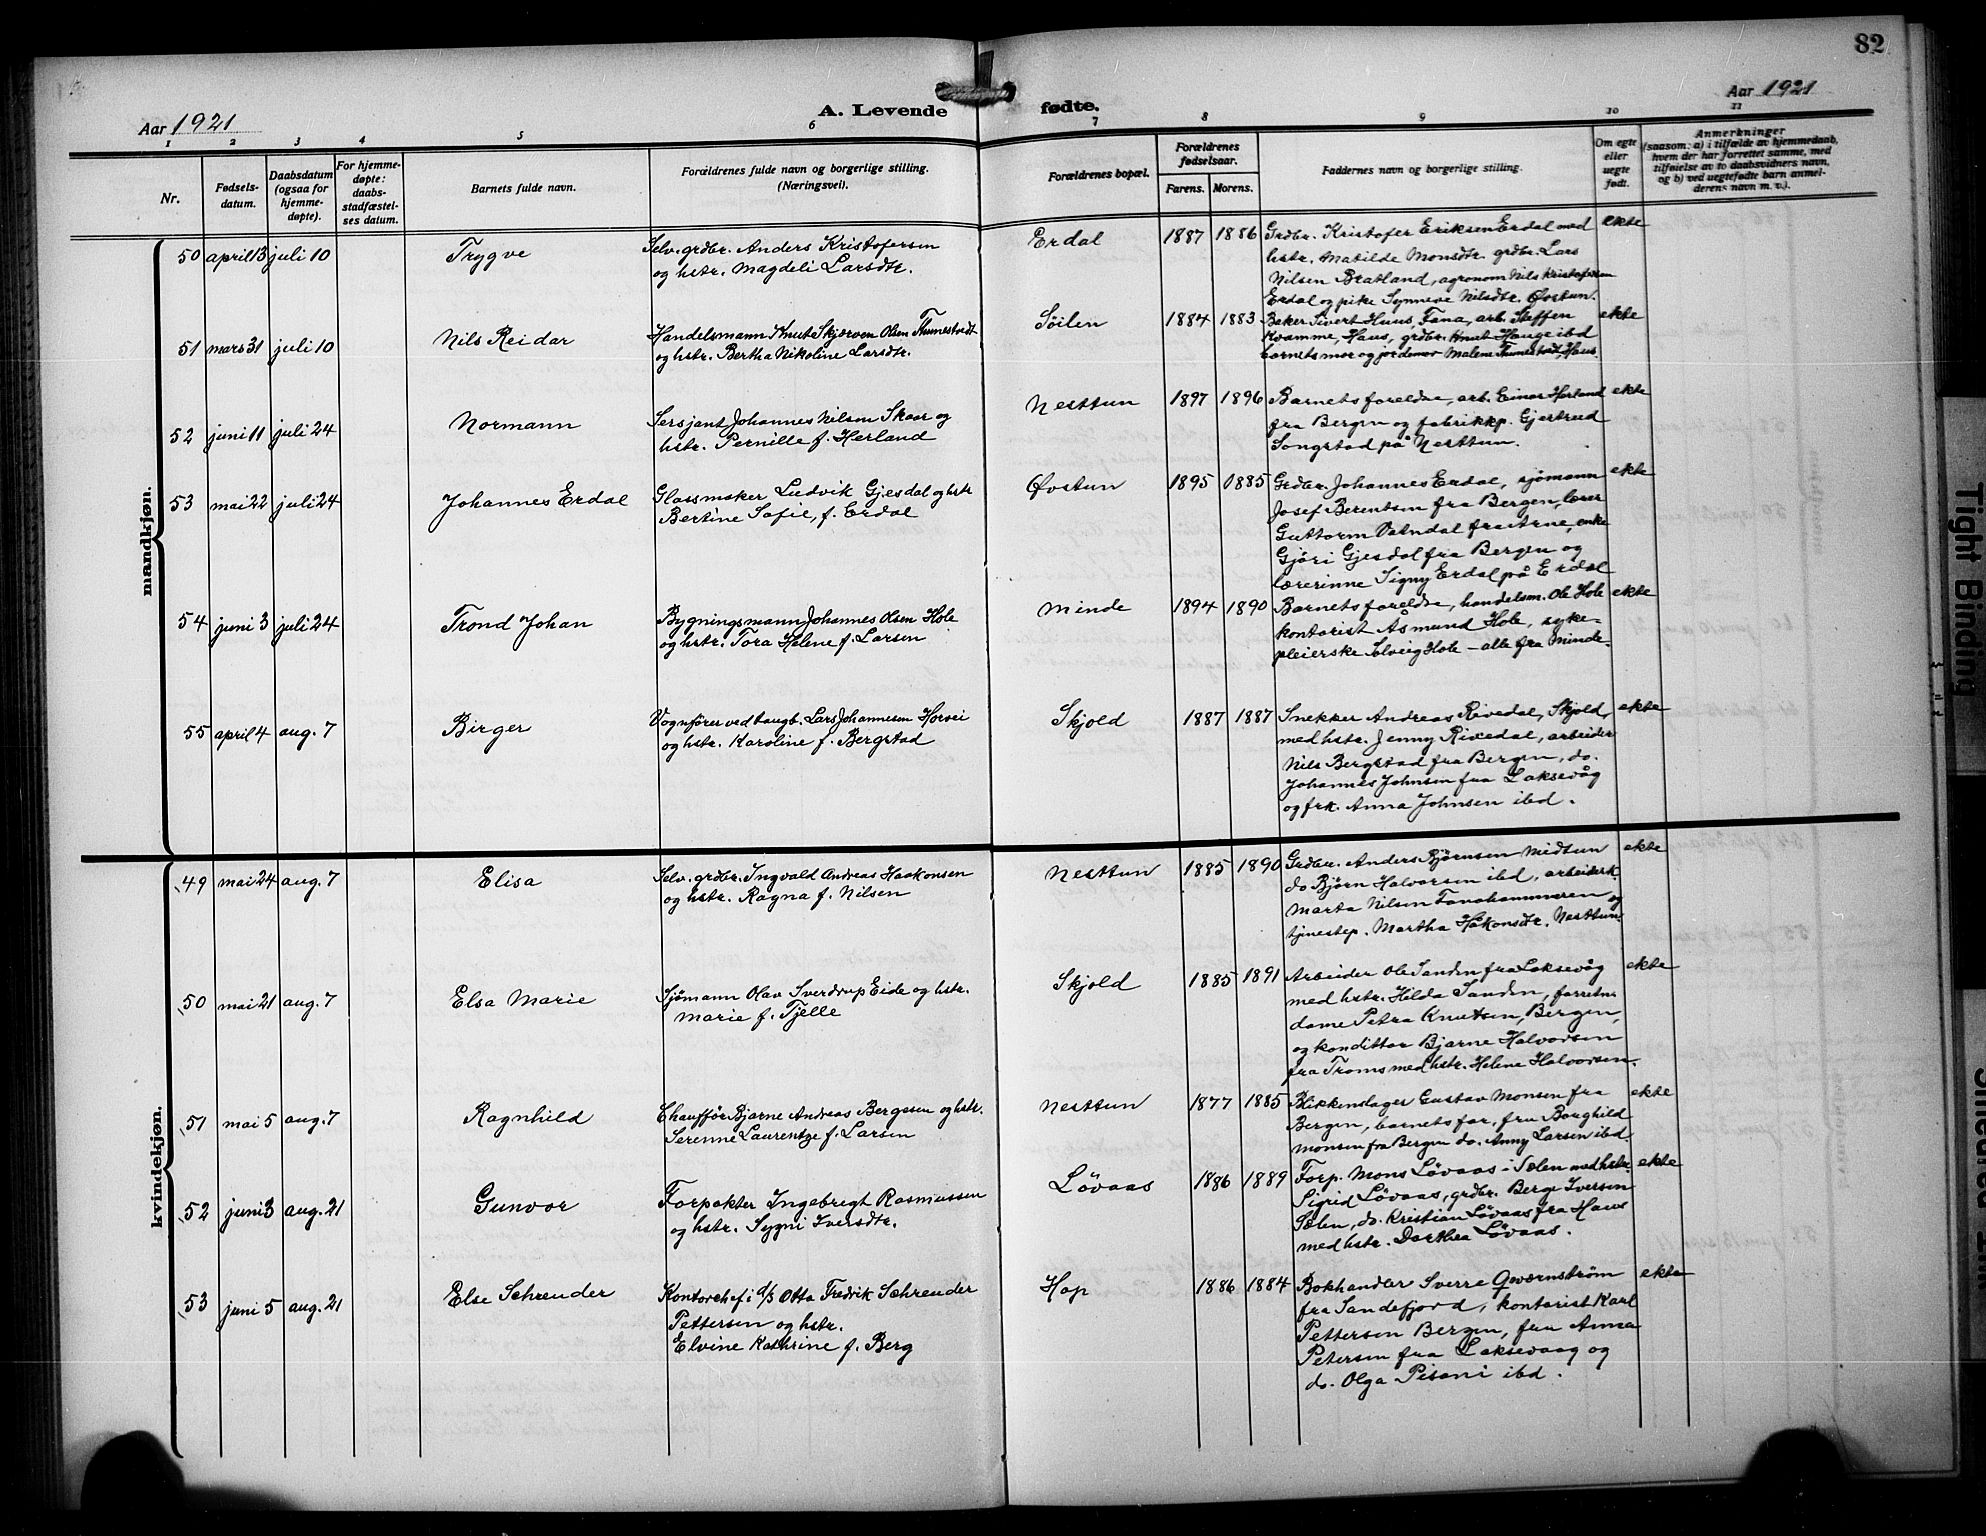 82
Aar 1921
A. Levende fødte.
Aar 1921
1 2 3 4 5 6 7 8 9 10 11
Nr.
Fødsels-
datum.
Daabsdatum
(ogsaa for
hjemme-
døpte).
For hjemme-
døpte:
daabs-
stadfæstel-
ses datum.
Barnets fulde navn.
Forældrenes fulde navn og borgerlige stilling.
(Næringsvei).
Forældrenes bopæl.
Forældrenes
fødselsaar.
Farens. Morens.
Faddernes navn og borgerlige stilling.
Om egte
eller
uegte
født.
Anmerkninger
(saasom: a) i tilfælde av hjemmedaab,
hvem der har forrettet samme, med
tilføielse av to daabsvidners navn,
og b) ved uegtefødte barn anmel-
derens navn m. v.).
mandkjøn.
50 april 13 juli 10 Trygve
Selv. grdbr. Anders Kristofersen
og hstr. Magdeli Larsdtr.
Erdal 1887 1886
Grdbr. Kristofer Eriksen Erdal med
hstr. Matilde Monsdtr. grdbr. Lars
Nilsen Bratland, agronom Nils Kristofersen
Erdal og pike Synneve Nilsdtr. Øvstun.
ekte
51 mars 31 juli 10 Nils Reidar
Handelsmann Knut Skjerven Olsen Thunestvedt
og hstr. Bertha Nikoline Larsdtr.
Søilen 1884 1883
Baker Sivert Huus, Fana, arb. Steffen
Kvamme, Haus, grdbr. Knut Hauge ibd
barnets mor og jordemor Malene Thunestvedt, Haus.
ekte
52 juni 11 juli 24 Normann
Sersjant Johannes Nilsen Skaar og
hstr. Pernille f. Herland
Nesttun 1897 1896
Barnets foreldre, arb. Einar Herland
fra Bergen og fabrikkp. Gjertrud
Songstad på Nesttun.
ekte
53 mai 22 juli 24 Johannes Erdal
Glassmaker Ludvik Gjesdal og hstr
Bertine Sofie, f. Erdal
Øvstun 1895 1885
Grdbr. Johannes Erdal, sjømann
Josef Berentsen fra Bergen, lærer
Guttorm Vatndal fra Arne, enke
Gjøri Gjesdal fra Bergen og
lærerinne Signy Erdal på Erdal
ekte
54 juni 3 juli 24 Trond Johan
Bygningsmann Johannes Olsen Hole
og hstr. Tora Helene f. Larsen
Minde 1894 1890
Barnets foreldre, handelsm. Ole Hole
kontorist Åsmund Hole, syke-
pleierske Solveig Hole – alle fra Minde.
ekte
55 april 4 aug. 7 Birger
Vognfører ved taugb. Lars Johannesen Horsei
og hstr. Karoline f. Bergstad
Skjold 1887 1887
Snekker Andreas Rivedal, Skjold,
med hstr. Jenny Rivedal, arbeider
Nils Bergstad fra Bergen, do.
Johannes Johnsen fra Laksevåg
og frk. Anna Johnsen ibd.
ekte
kvindekjøn.
49 mai 24 aug. 7 Elisa
Selv. grdbr. Ingvald Andreas Haakonsen
og hstr. Ragna f. Nilsen
Nesttun 1885 1890
Grdbr. Anders Bjørnsen Midtun
do Bjørn Halvorsen ibd, arbeidersk
Marta Nilsen Fanahammeren og
tjenestep. Martha Håkonsdtr. Nesttun.
ekte
50 mai 21 aug. 7 Elsa Marie
Sjømann Olav Sverdrup Eide og hstr.
Marie f. Tjelle
Skjold 1885 1891
Arbeider Ole Sanden fra Laksevåg
med hstr. Hilda Sanden, forretn.
dame Petra Knutsen, Bergen,
og konditter Bjarne Halvorsen
fra Troms med hstr. Helene Halvorsen.
ekte
51 mai 5 aug. 7 Ragnhild
Chauffør Bjarne Andreas Bergesen og hstr.
Serenne Laurentze f. Larsen
Nesttun 1877 1885
Blikkenslager Gustav Monsen fra
Bergen, barnets far, fru Borghild
Monsen fra Bergen do. Anny Larsen ibd.
ekte
52 juni 3 aug. 21 Gunvor
Forpakter Ingebrigt Rasmussen
og hstr. Sygni Iversdtr.
Løvaas 1886 1889
Forp. Mons Løvaas i Sælen med hstr.
Sigrid Løvaas, grdbr. Berge Iversen
Sælen, do. Kristian Løvaas fra Haus
med hstr. Dorthea Løvaas.
ekte
53 juni 5 aug. 21 Else Schreuder
Kontorchef i d/s Otto Fredrik Schreuder
Pettersen og hstr.
Elvine Kathrine f. Berg
Hop 1886 1884
Bokhandler Sverre Qwernstrøm
fra Sandefjord, kontorist Karl
Pettersen Bergen, fru Anna
Petersen fra Laksevaag og
do. Olga Pisani ibd.
ekte
Tight Binding